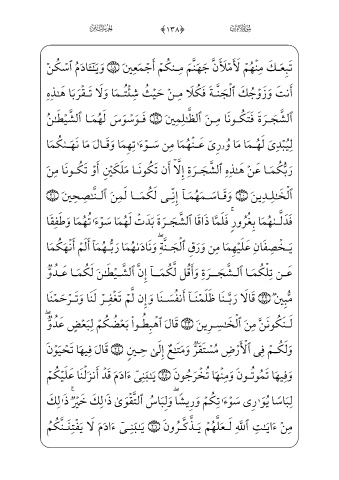 سورة الأعراف ﴿١٣٨﴾ الجزء الثامن
تَبِعَكَ مِنْهُمْ لَأَمْلَأَنَّ جَهَنَّمَ مِنكُمْ أَجْمَعِينَ ۝١٨ وَيَٰٓـَٔادَمُ ٱسْكُنْ
أَنتَ وَزَوْجُكَ ٱلْجَنَّةَ فَكُلَا مِنْ حَيْثُ شِئْتُمَا وَلَا تَقْرَبَا هَٰذِهِ
ٱلشَّجَرَةَ فَتَكُونَا مِنَ ٱلظَّٰلِمِينَ ۝١٩ فَوَسْوَسَ لَهُمَا ٱلشَّيْطَٰنُ
لِيُبْدِىَ لَهُمَا مَا وُۥرِىَ عَنْهُمَا مِن سَوْءَٰتِهِمَا وَقَالَ مَا نَهَىٰكُمَا
رَبُّكُمَا عَنْ هَٰذِهِ ٱلشَّجَرَةِ إِلَّآ أَن تَكُونَا مَلَكَيْنِ أَوْ تَكُونَا مِنَ
ٱلْخَٰلِدِينَ ۝٢٠ وَقَاسَمَهُمَآ إِنِّى لَكُمَا لَمِنَ ٱلنَّٰصِحِينَ ۝٢١
فَدَلَّىٰهُمَا بِغُرُورٍ ۚ فَلَمَّا ذَاقَا ٱلشَّجَرَةَ بَدَتْ لَهُمَا سَوْءَٰتُهُمَا وَطَفِقَا
يَخْصِفَانِ عَلَيْهِمَا مِن وَرَقِ ٱلْجَنَّةِ ۖ وَنَادَىٰهُمَا رَبُّهُمَآ أَلَمْ أَنْهَكُمَا
عَن تِلْكُمَا ٱلشَّجَرَةِ وَأَقُل لَّكُمَآ إِنَّ ٱلشَّيْطَٰنَ لَكُمَا عَدُوٌّ
مُّبِينٌ ۝٢٢ قَالَا رَبَّنَا ظَلَمْنَآ أَنفُسَنَا وَإِن لَّمْ تَغْفِرْ لَنَا وَتَرْحَمْنَا
لَنَكُونَنَّ مِنَ ٱلْخَٰسِرِينَ ۝٢٣ قَالَ ٱهْبِطُوا۟ بَعْضُكُمْ لِبَعْضٍ عَدُوٌّ ۖ
وَلَكُمْ فِى ٱلْأَرْضِ مُسْتَقَرٌّ وَمَتَٰعٌ إِلَىٰ حِينٍ ۝٢٤ قَالَ فِيهَا تَحْيَوْنَ
وَفِيهَا تَمُوتُونَ وَمِنْهَا تُخْرَجُونَ ۝٢٥ يَٰبَنِىٓ ءَادَمَ قَدْ أَنزَلْنَا عَلَيْكُمْ
لِبَاسًا يُوَٰرِى سَوْءَٰتِكُمْ وَرِيشًا ۖ وَلِبَاسُ ٱلتَّقْوَىٰ ذَٰلِكَ خَيْرٌ ۚ ذَٰلِكَ
مِنْ ءَايَٰتِ ٱللَّهِ لَعَلَّهُمْ يَذَّكَّرُونَ ۝٢٦ يَٰبَنِىٓ ءَادَمَ لَا يَفْتِنَنَّكُمُ